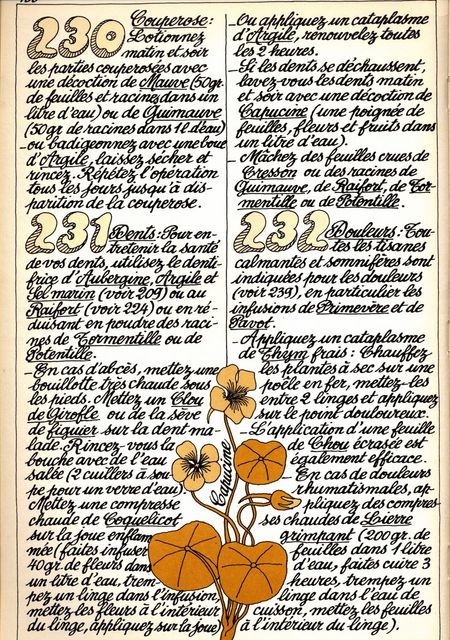 230 Couperose:
Lotionnez
matin et soir
les parties couperosées avec
une décoction de Mauve (50gr.
de feuilles et racines dans un
litre d'eau) ou de Guimauve
(50gr de racines dans 1l d'eau)
_ou badigeonnez avec une boue
d'Argile, laissez sécher et
rincez. Répétez l'opération
tous les jours jusqu'à dis-
parition de la couperose.
231 Dents: Pour en-
tretenir la santé
de vos dents, utilisez le denti-
frice d'Aubergine, Argile et
Sel marin (voir 209) ou au
Raifort (voir 224) ou en ré-
duisant en poudre des raci-
nes de Tormentille ou de
Potentille.
_En cas d'abcès, mettez une
bouillotte très chaude sous
les pieds. Mettez un Clou
de Girofle ou de la sève
de figuier sur la dent ma-
lade. Rincez-vous la
bouche avec de l'eau
salée (2 cuillers à sou-
pe pour un verre d'eau).
Mettez une compresse
chaude de Coquelicot
sur la joue enflam-
mée (faites infuser
40gr. de fleurs dans
un litre d'eau, trem-
pez un linge dans l'infusion,
mettez les fleurs à l'intérieur
du linge, appliquez sur la joue)
_Ou appliquez un cataplasme
d'Argile, renouvelez toutes
les 2 heures.
_Si les dents se déchaussent,
lavez-vous les dents matin
et soir avec une décoction de
Capucine (une poignée de
feuilles, fleurs et fruits dans
un litre d'eau).
_Mâchez des feuilles crues de
Cresson ou des racines de
Guimauve, de Raifort, de Tor-
mentille ou de Potentille.
232 Douleurs: Tou-
tes les tisanes
calmantes et somnifères sont
indiquées pour les douleurs
(voir 239), en particulier les
infusions de Primevère et de
Pavot.
_Appliquez un cataplasme
de Thym frais: Chauffez
les plantes à sec sur une
poêle en fer, mettez-les
entre 2 linges et appliquez
sur le point douloureux.
_L'application d'une feuille
de Chou écrasée est
également efficace.
_En cas de douleurs
rhumatismales, ap-
pliquez des compres-
ses chaudes de Lierre
grimpant (200gr. de
feuilles dans 1 litre
d'eau, faites cuire 3
heures, trempez un
linge dans l'eau de
cuisson, mettez les feuilles
à l'intérieur du linge).
Capucine